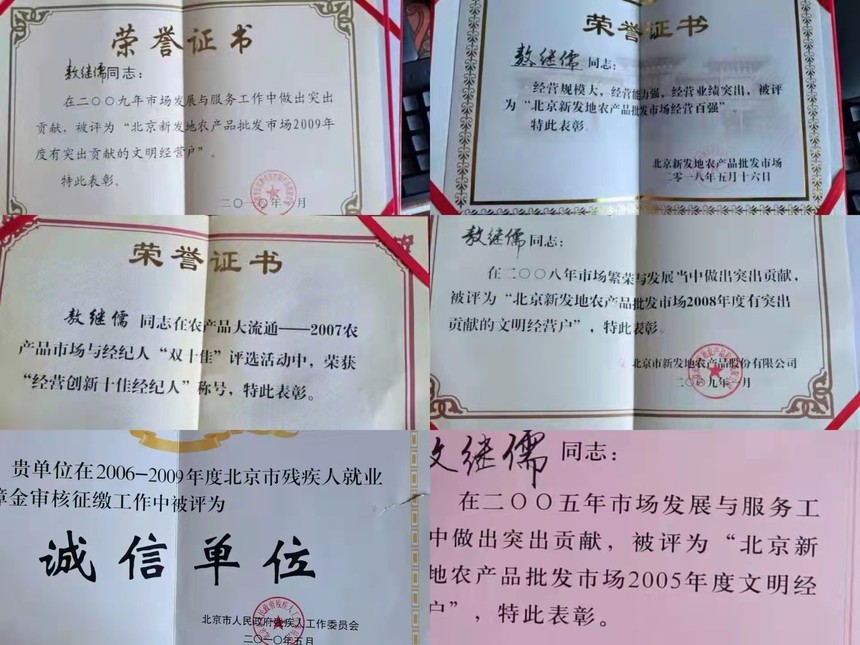 荣誉证书
敖继儒同志：
在二〇〇九年市场发展与服务工作中做出突出
贡献，被评为“北京新发地农产品批发市场2009年
度有突出贡献的文明经营户”。
特此表彰。
二〇一〇年一月
荣誉证书
敖继儒 同志：
经营规模大，经营能力强，经营业绩突出，被评
为“北京新发地农产品批发市场经营百强”
特此表彰。
北京新发地农产品批发市场
二零一八年五月十六日
荣誉证书
敖继儒 同志在农产品大流通——2007农
产品市场与经纪人“双十佳”评选活动中，荣获
“经营创新十佳经纪人”称号，特此表彰。
敖继儒同志：
在二〇〇八年市场繁荣与发展当中做出突出贡献，
被评为“北京新发地农产品批发市场2008年度有突出
贡献的文明经营户”，特此表彰。
北京市新发地农产品股份有限公司
二〇〇九年一月
贵单位在2006-2009年度北京市残疾人就业
障金审核征缴工作中被评为
诚信单位
北京市人民政府残疾人工作委员会
二〇一〇年五月
敖继儒 同志：
在二〇〇五年市场发展与服务工
中做出突出贡献，被评为“北京新
地农产品批发市场2005年度文明经
户”，特此表彰。